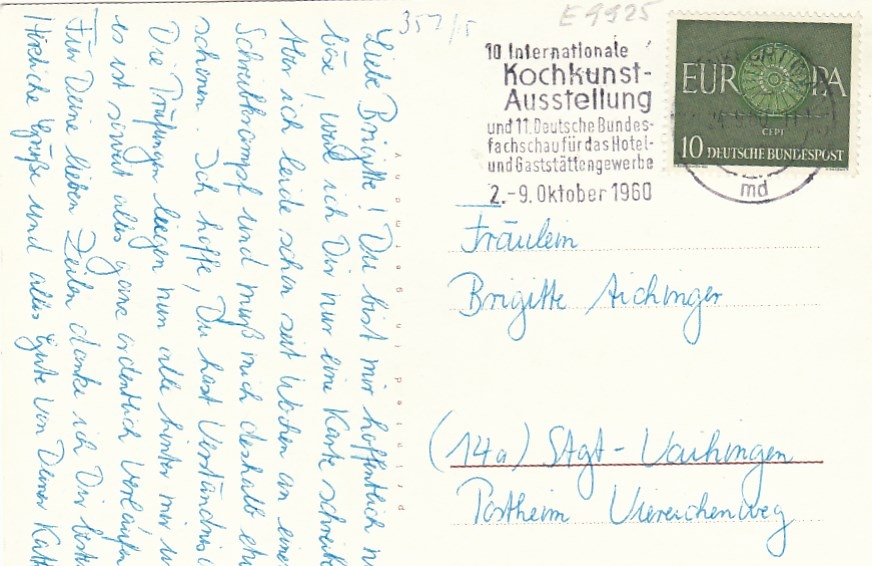 357/15
E9925
10 Internationale
Kochkunst-
Ausstellung
und 11. Deutsche Bundes-
fachschau für das Hotel-
und Gaststättengewerbe
2.-9. Oktober 1960
EUROPA
CEPT
10 DEUTSCHE BUNDESPOST
md
Fräulein
Brigitte Aichinger
(14a) Stgt-Vaihingen
Postheim Viereichenweg
Liebe Brigitte! Du bist mir hoffentlich n
böse, weil ich Dir nur eine Karte schreibe
Aber ich leide schon seit Wochen an eine
Schreibkrampf und muß mich deshalb etw
schonen. Ich hoffe, Du hast Verständnis
Die Prüfungen liegen nun alle hinter mir u
es ist soweit alles ganz ordentlich verlaufen
Für Deine lieben Zeilen danke ich Dir best
Herzliche Grüße und alles Gute von Deiner Kät
Printed in Germany